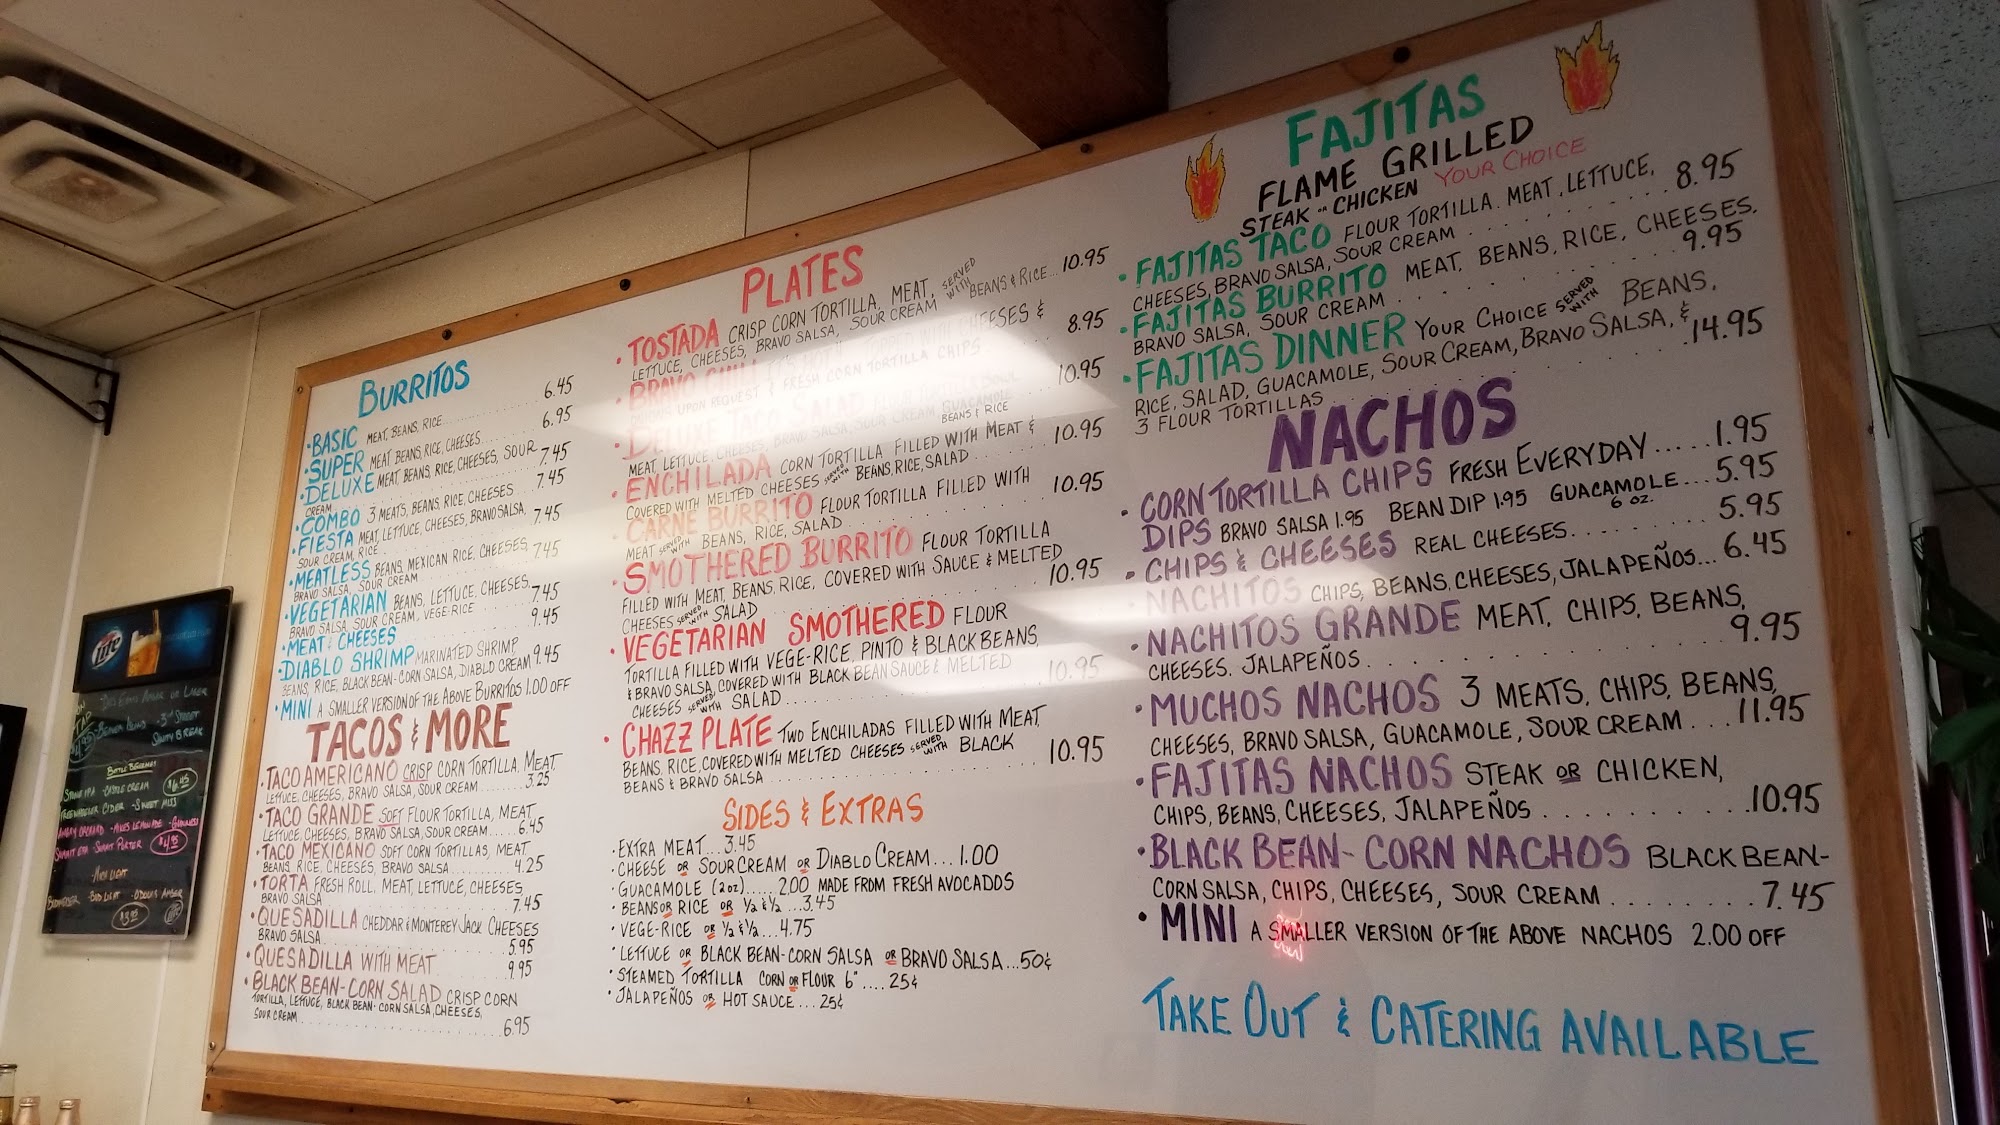 BURRITOS
• BASIC MEAT, BEANS, RICE 6.45
• SUPER MEAT, BEANS, RICE, CHEESES 6.95
• DELUXE MEAT, BEANS, RICE, CHEESES, SOUR 7.45
CREAM
• COMBO 3 MEATS, BEANS, RICE, CHEESES 7.45
• FIESTA MEAT, LETTUCE, CHEESES, BRAVO SALSA, 7.45
SOUR CREAM, RICE
• MEATLESS BEANS, MEXICAN RICE, CHEESES, 7.45
BRAVO SALSA, SOUR CREAM
• VEGETARIAN BEANS, LETTUCE, CHEESES, 7.45
BRAVO SALSA, SOUR CREAM, VEGE-RICE
• MEAT & CHEESES 9.45
• DIABLO SHRIMP MARINATED SHRIMP
BEANS, RICE, BLACK BEAN-CORN SALSA, DIABLO CREAM 9.45
• MINI A SMALLER VERSION OF THE ABOVE BURRITOS 1.00 OFF
TACOS & MORE
• TACO AMERICANO CRISP CORN TORTILLA, MEAT,
LETTUCE, CHEESES, BRAVO SALSA, SOUR CREAM 3.25
• TACO GRANDE SOFT FLOUR TORTILLA, MEAT,
LETTUCE, CHEESES, BRAVO SALSA, SOUR CREAM 6.45
• TACO MEXICANO SOFT CORN TORTILLAS, MEAT
BEANS, RICE, CHEESES, BRAVO SALSA 4.25
• TORTA FRESH ROLL, MEAT, LETTUCE, CHEESES
BRAVO SALSA 7.45
• QUESADILLA CHEDDAR & MONTEREY JACK CHEESES
BRAVO SALSA 5.95
• QUESADILLA WITH MEAT 9.95
• BLACK BEAN-CORN SALAD CRISP CORN
TORTILLA, LETTUCE, BLACK BEAN-CORN SALSA, CHEESES,
SOUR CREAM 6.95
PLATES
• TOSTADA CRISP CORN TORTILLA, MEAT,
LETTUCE, CHEESES, BRAVO SALSA, SOUR CREAM SERVED WITH BEANS & RICE... 10.95
• BRAVO CHILI IT'S HOT! TOPPED WITH CHEESES &
ONIONS UPON REQUEST & FRESH CORN TORTILLA CHIPS 8.95
• DELUXE TACO SALAD FLOUR TORTILLA BOWL
MEAT, LETTUCE, CHEESES, BRAVO SALSA, SOUR CREAM GUACAMOLE BEANS & RICE 10.95
• ENCHILADA CORN TORTILLA FILLED WITH MEAT &
COVERED WITH MELTED CHEESES SERVED WITH BEANS, RICE, SALAD 10.95
• CARNE BURRITO FLOUR TORTILLA FILLED WITH
MEAT SERVED WITH BEANS, RICE, SALAD 10.95
• SMOTHERED BURRITO FLOUR TORTILLA
FILLED WITH MEAT, BEANS, RICE, COVERED WITH SAUCE & MELTED
CHEESES SERVED WITH SALAD 10.95
• VEGETARIAN SMOTHERED FLOUR
TORTILLA FILLED WITH VEGE-RICE, PINTO & BLACK BEANS,
& BRAVO SALSA, COVERED WITH BLACK BEAN SAUCE & MELTED
CHEESES SERVED WITH SALAD 10.95
• CHAZZ PLATE TWO ENCHILADAS FILLED WITH MEAT,
BEANS, RICE, COVERED WITH MELTED CHEESES SERVED WITH BLACK
BEANS & BRAVO SALSA 10.95
SIDES & EXTRAS
• EXTRA MEAT... 3.45
• CHEESE OR SOUR CREAM OR DIABLO CREAM... 1.00
• GUACAMOLE (2oz)..... 2.00 MADE FROM FRESH AVOCADOS
• BEANS OR RICE OR ½ & ½ ...3.45
• VEGE-RICE OR ½ & ½...4.75
• LETTUCE OR BLACK BEAN-CORN SALSA OR BRAVO SALSA...50¢
• STEAMED TORTILLA CORN OR FLOUR 6".... 25¢
• JALAPEÑOS OR HOT SAUCE... 25¢
FAJITAS
FLAME GRILLED
STEAK OR CHICKEN YOUR CHOICE
• FAJITAS TACO FLOUR TORTILLA. MEAT, LETTUCE,
CHEESES, BRAVO SALSA, SOUR CREAM 8.95
• FAJITAS BURRITO MEAT, BEANS, RICE, CHEESES,
BRAVO SALSA, SOUR CREAM 9.95
• FAJITAS DINNER YOUR CHOICE SERVED WITH BEANS,
RICE, SALAD, GUACAMOLE, SOUR CREAM, BRAVO SALSA, &
3 FLOUR TORTILLAS 14.95
NACHOS
• CORN TORTILLA CHIPS FRESH EVERYDAY..... 1.95
DIPS BRAVO SALSA 1.95 BEAN DIP 1.95 GUACAMOLE... 5.95
6 oz.
• CHIPS & CHEESES REAL CHEESES 5.95
NACHITOS CHIPS, BEANS, CHEESES, JALAPEÑOS... 6.45
• NACHITOS GRANDE MEAT, CHIPS, BEANS,
CHEESES, JALAPEÑOS 9.95
• MUCHOS NACHOS 3 MEATS, CHIPS, BEANS,
CHEESES, BRAVO SALSA, GUACAMOLE, SOUR CREAM ... 11.95
• FAJITAS NACHOS STEAK OR CHICKEN,
CHIPS, BEANS, CHEESES, JALAPEÑOS 10.95
• BLACK BEAN-CORN NACHOS BLACK BEAN-
CORN SALSA, CHIPS, CHEESES, SOUR CREAM 7.45
• MINI A SMALLER VERSION OF THE ABOVE NACHOS 2.00 OFF
TAKE OUT & CATERING AVAILABLE
Lite
ON TAP
DOS EQUIS AMBER OR LAGER
$4.95
BOTTLE BEVERAGES
STONE IPA - CASTLE CREAM $6.45
TREEWHEELER CIDER - SWEET MISS
ANGRY ORCHARD - MIKES LEMONADE - GUINNESS
SUMMIT EPA - SUMMIT PORTER $4.95
- BUD LIGHT - O'DOULS AMBER